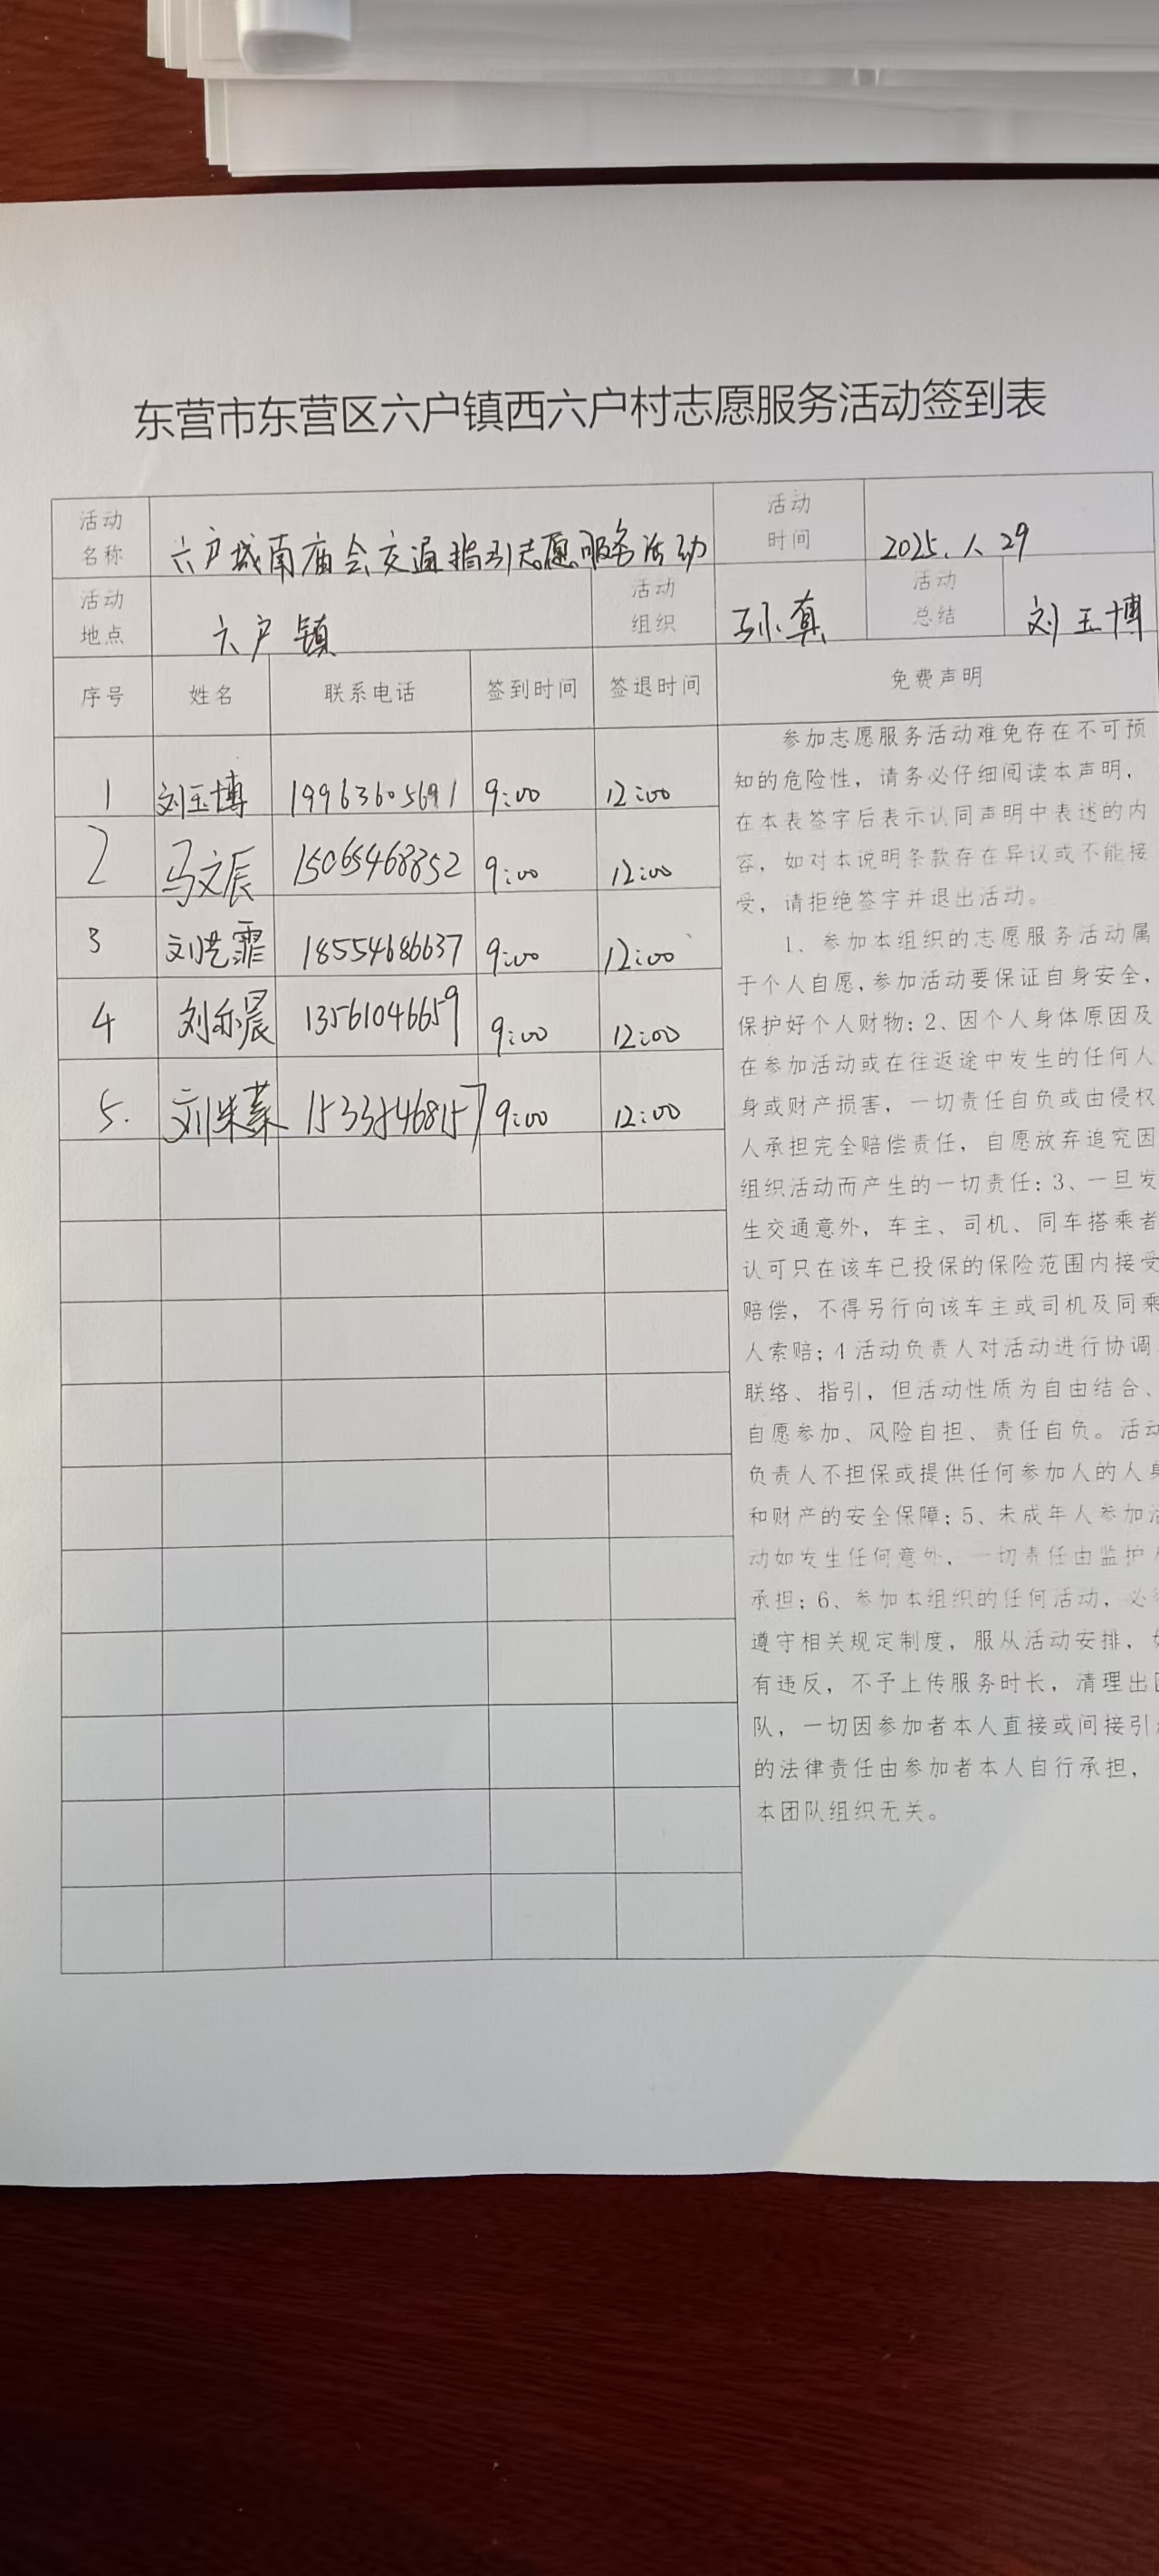 东营市东营区六户镇西六户村志愿服务活动签到表
活动名称 六户城南庙会交通指引志愿服务活动 活动时间 2025.1.29
活动地点 六户镇 活动组织 孙真 活动总结 刘玉博
序号 姓名 联系电话 签到时间 签退时间 免费声明
1 刘玉博 19963605691 9:00 12:00
2 马文辰 15065468852 9:00 12:00
3 刘艺霏 18554686637 9:00 12:00
4 刘亦晨 13561046659 9:00 12:00
5. 刘 15335468157 9:00 12:00
参加志愿服务活动难免存在不可预
知的危险性，请务必仔细阅读本声明，
在本表签字后表示认同声明中表述的内
容，如对本说明条款存在异议或不能接
受，请拒绝签字并退出活动。
1、参加本组织的志愿服务活动属
于个人自愿，参加活动要保证自身安全，
保护好个人财物；2、因个人身体原因及
在参加活动或在往返途中发生的任何人
身或财产损害，一切责任自负或由侵权
人承担完全赔偿责任，自愿放弃追究因
组织活动而产生的一切责任；3、一旦发
生交通意外，车主、司机、同车搭乘者
认可只在该车已投保的保险范围内接受
赔偿，不得另行向该车主或司机及同乘
人索赔；4活动负责人对活动进行协调
联络、指引，但活动性质为自由结合、
自愿参加、风险自担、责任自负。活动
负责人不担保或提供任何参加人的人身
和财产的安全保障；5、未成年人参加活
动如发生任何意外，一切责任由监护人
承担；6、参加本组织的任何活动，必须
遵守相关规定制度，服从活动安排，如
有违反，不予上传服务时长，清理出团
队，一切因参加者本人直接或间接引
的法律责任由参加者本人自行承担，
本团队组织无关。